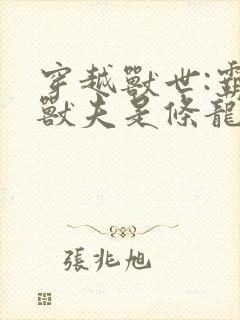 穿越獸世:霸
獸夫是條龍
張兆旭